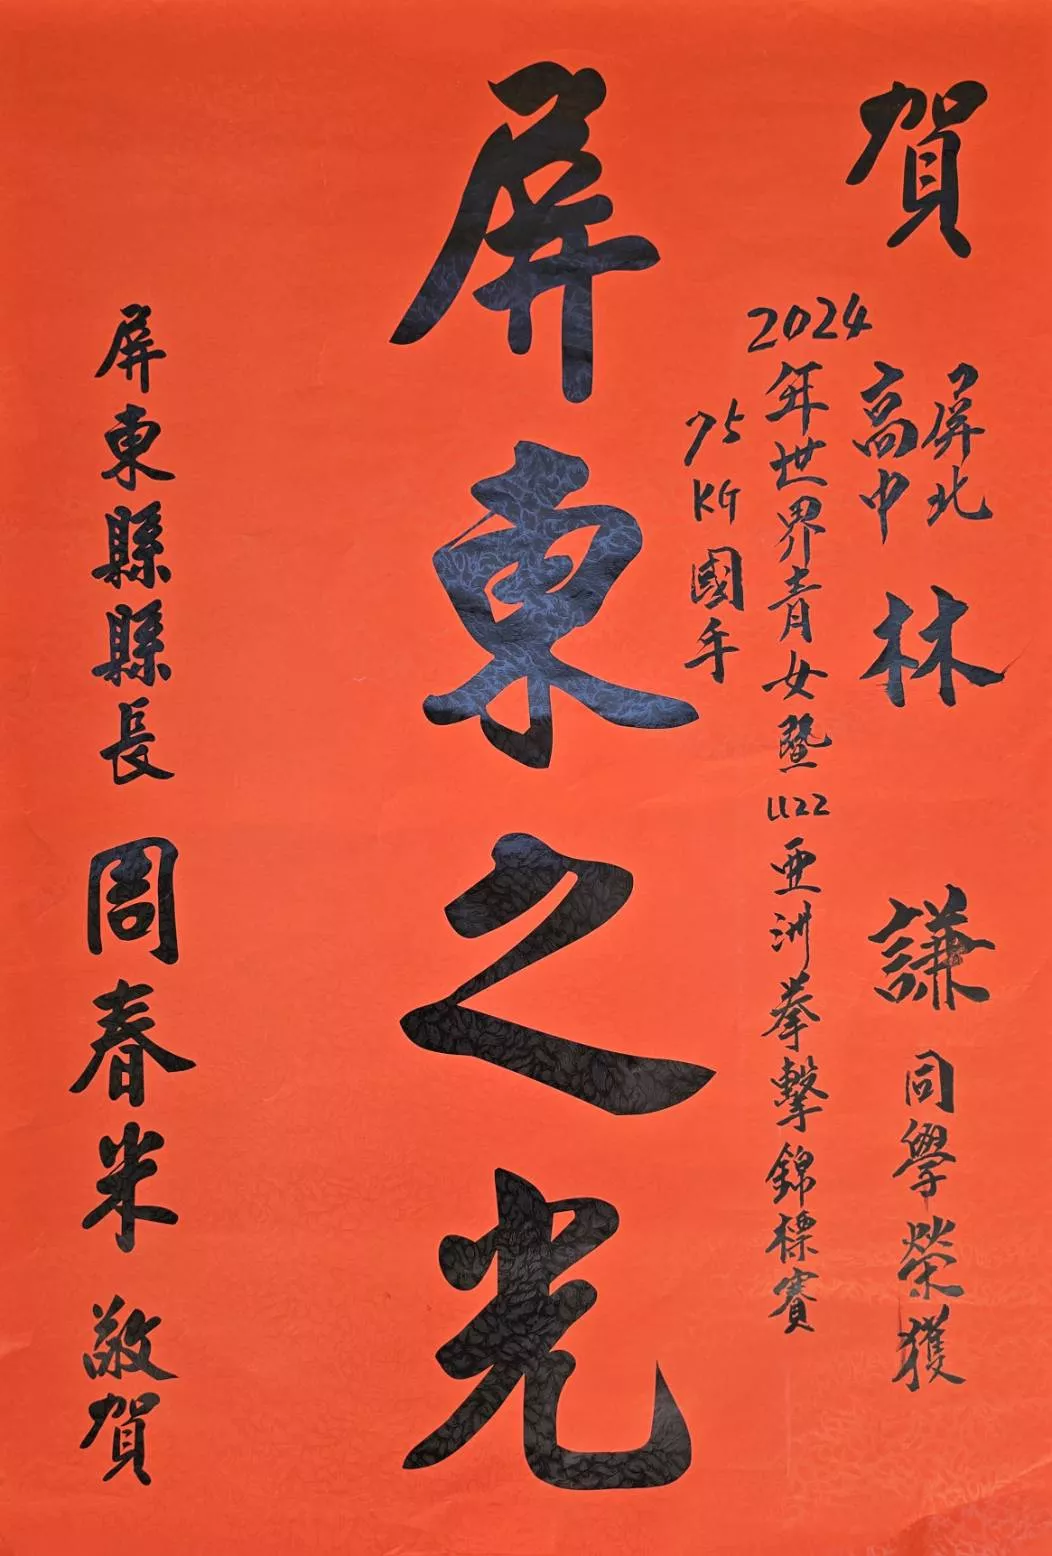 賀
屏北
高中
林謙同學榮獲
2024年世界青女暨U22亞洲拳擊錦標賽
75KG國手
屏東之光
屏東縣縣長周春米敬賀